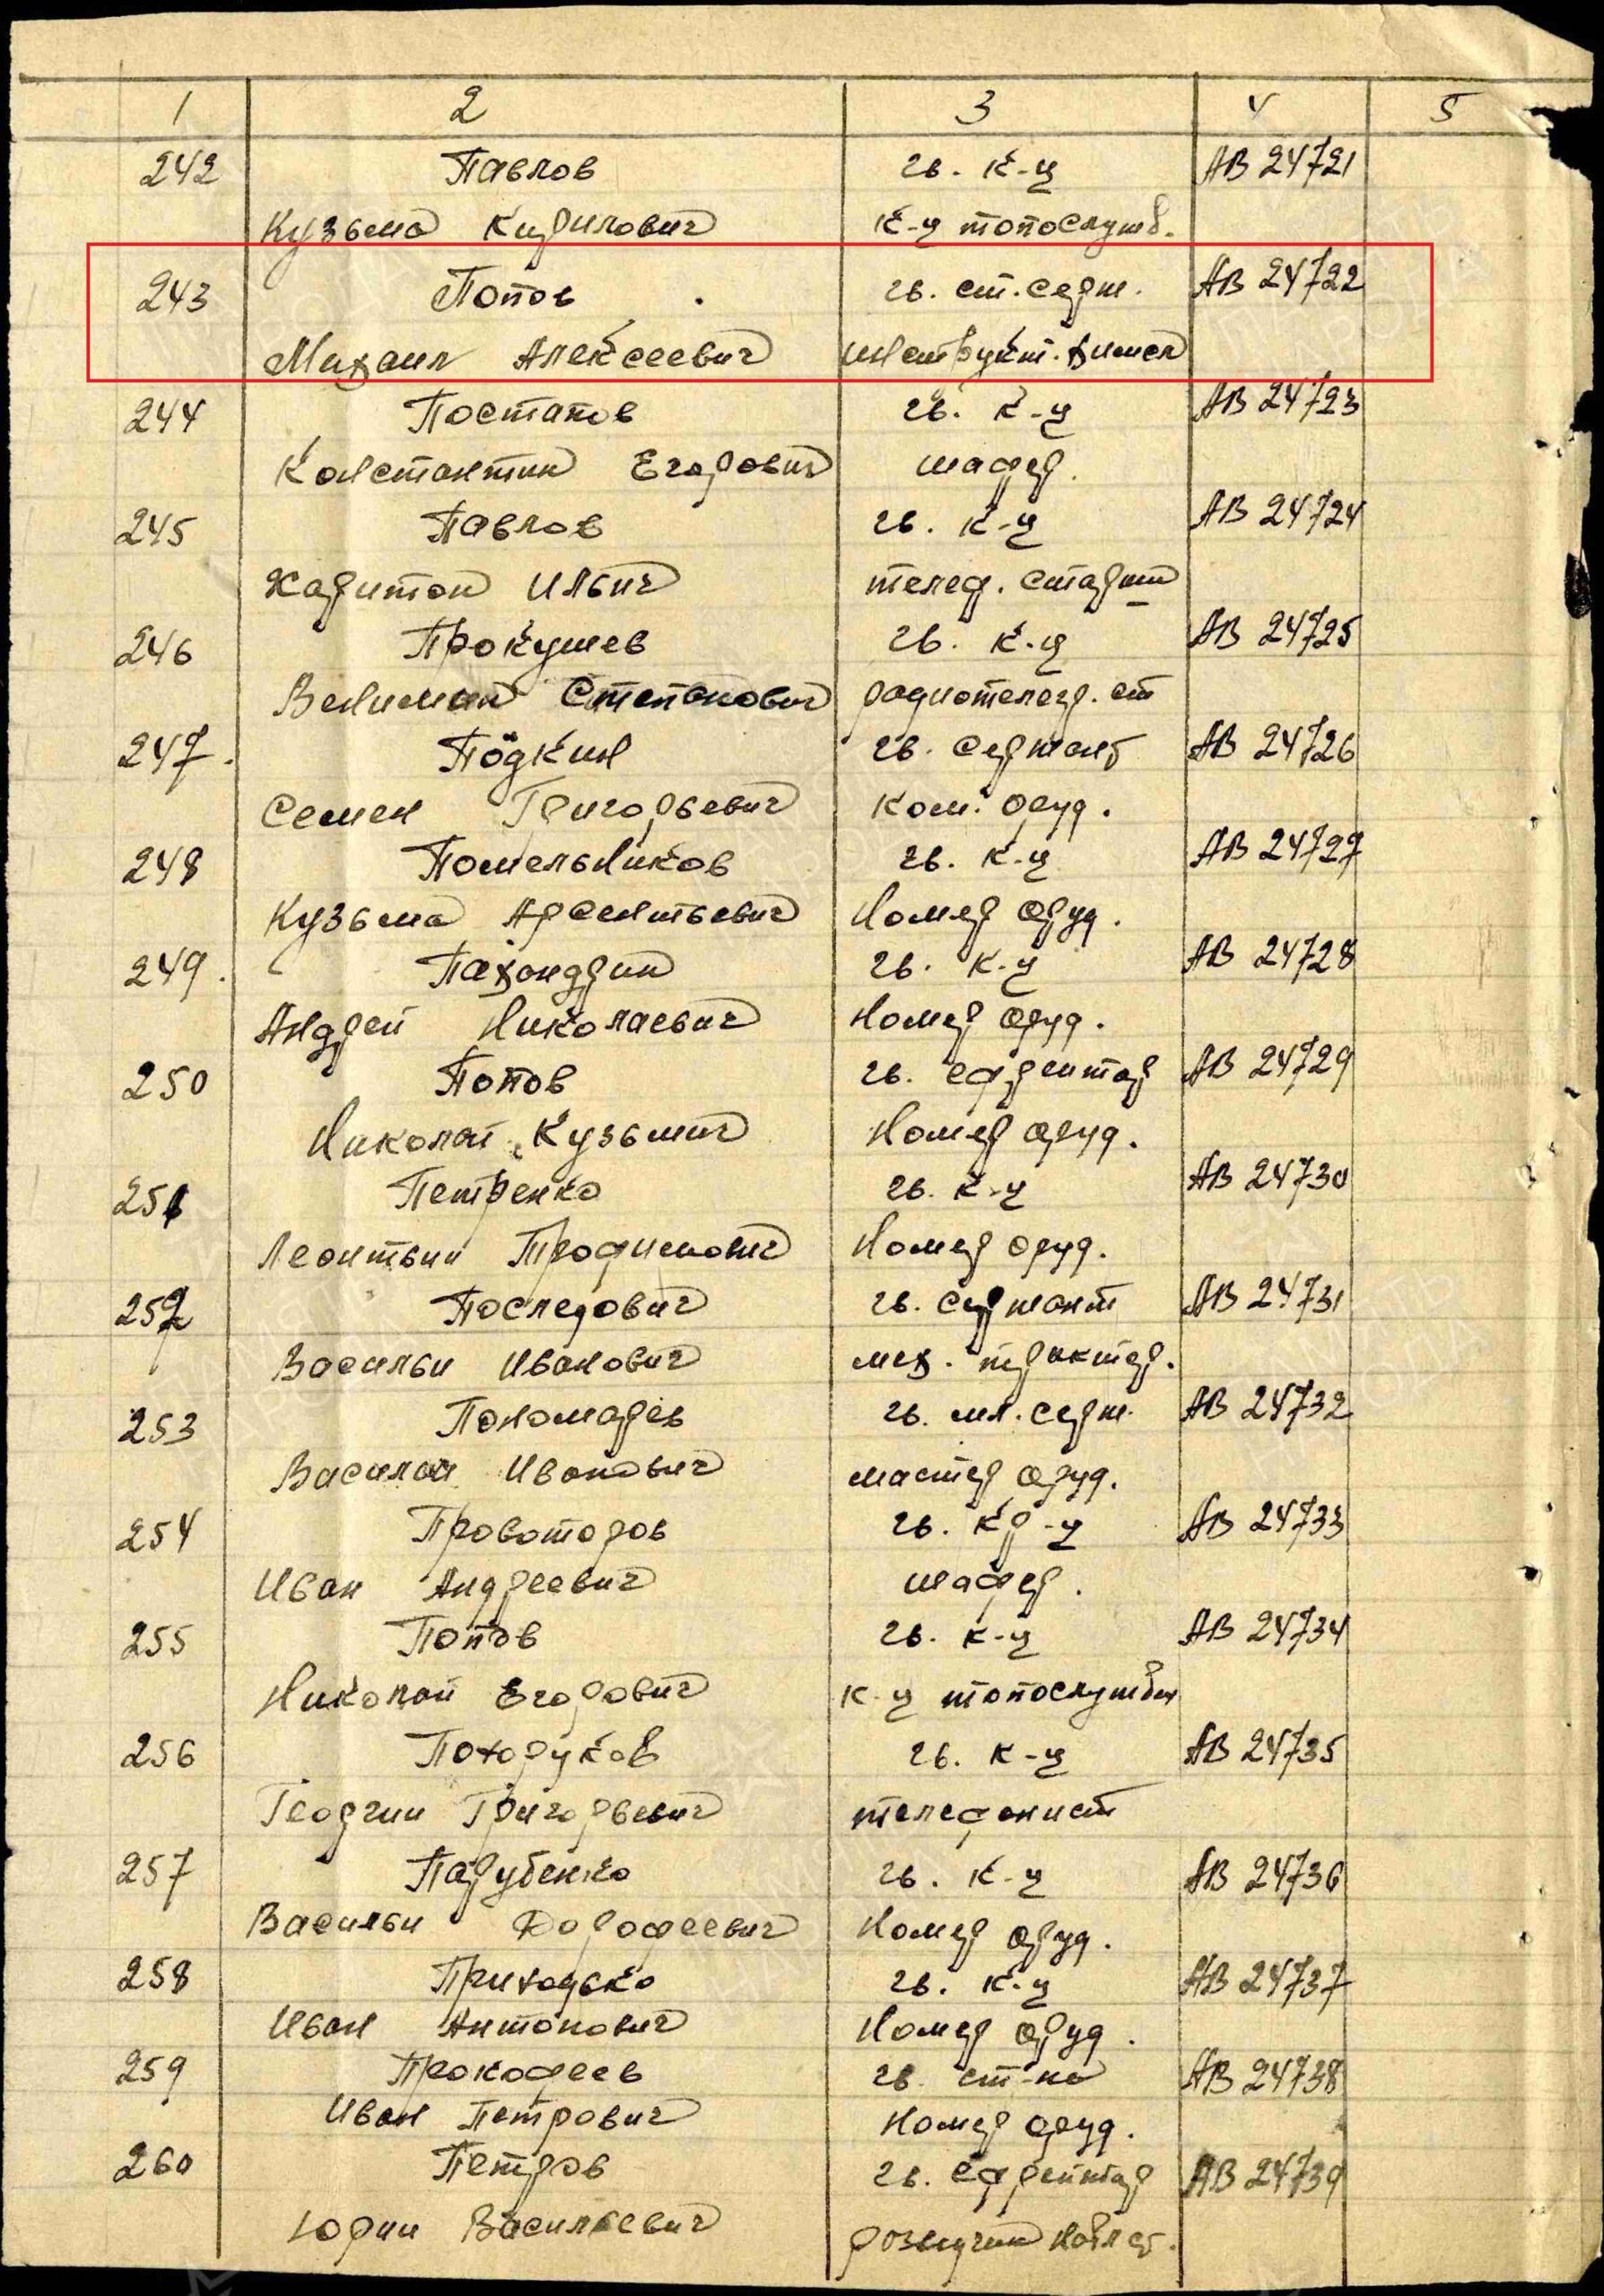 1 2 3 4 5
242 Павлов гв. к-ц АВ 24721
Кузьма Кирилович к-ц топослужб.
243 Попов гв. ст. серж. АВ 24722
Михаил Алексеевич инструкт. химсл
244 Постапов гв. к-ц АВ 24723
Константин Егорович шофер.
245 Павлов гв. к-ц АВ 24724
Харитон Ильич телеф. старший
246 Прокушев гв. к-ц АВ 24725
Вениамин Степанович радиотелегр. ст
247. Подкин гв. сержант АВ 24726
Семен Григорьевич ком. оруд.
248 Помельников гв. к-ц АВ 24727
Кузьма Арсентьевич Номер оруд.
249. Пахондрин гв. к-ц АВ 24728
Андрей Николаевич Номер оруд.
250 Попов гв. ефрейтор АВ 24729
Николай Кузьмич Номер оруд.
251 Петренко гв. к-ц АВ 24730
Леонтьии Трофимович Номер оруд.
252 Последович гв. сержант АВ 24731
Васильи Иванович мех. трактер.
253 Пономарев гв. мл. серж. АВ 24732
Василий Иванович мастер оруд.
254 Провоторов гв. кр-ц АВ 24733
Иван Андреевич шофер.
255 Попов гв. к-ц АВ 24734
Николай Егорович к-ц топослужбы
256 Похоруков гв. к-ц АВ 24735
Георгии Григорьевич телефонист
257 Парубенко гв. к-ц АВ 24736
Васильи Дорофеевич Номер оруд.
258 Приходько гв. к-ц АВ 24737
Иван Антонович Номер оруд.
259 Прокофеев гв. ст-на АВ 24738
Иван Петрович Номер оруд.
260 Петров гв. ефрейтор АВ 24739
Юрии Васильевич